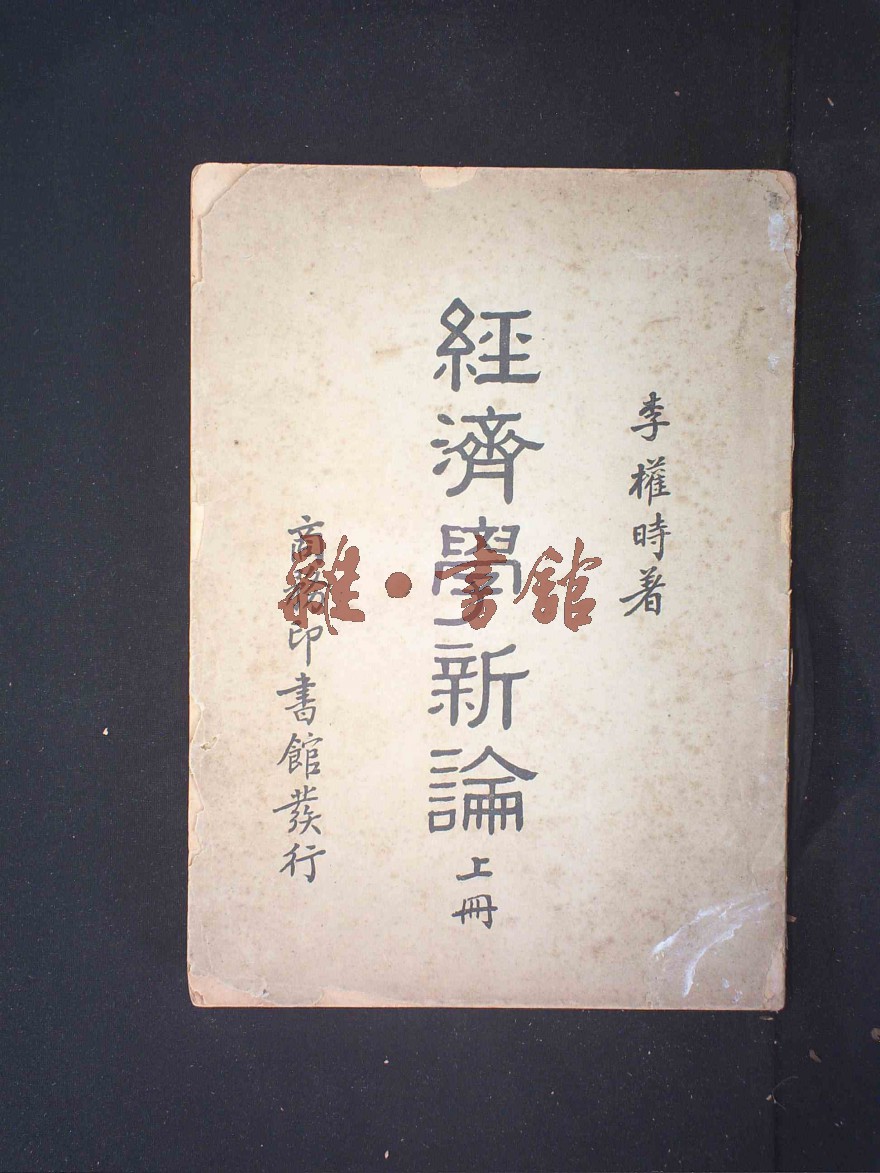 李權時著
經濟學新論 上冊
商務印書館發行
雜·書館